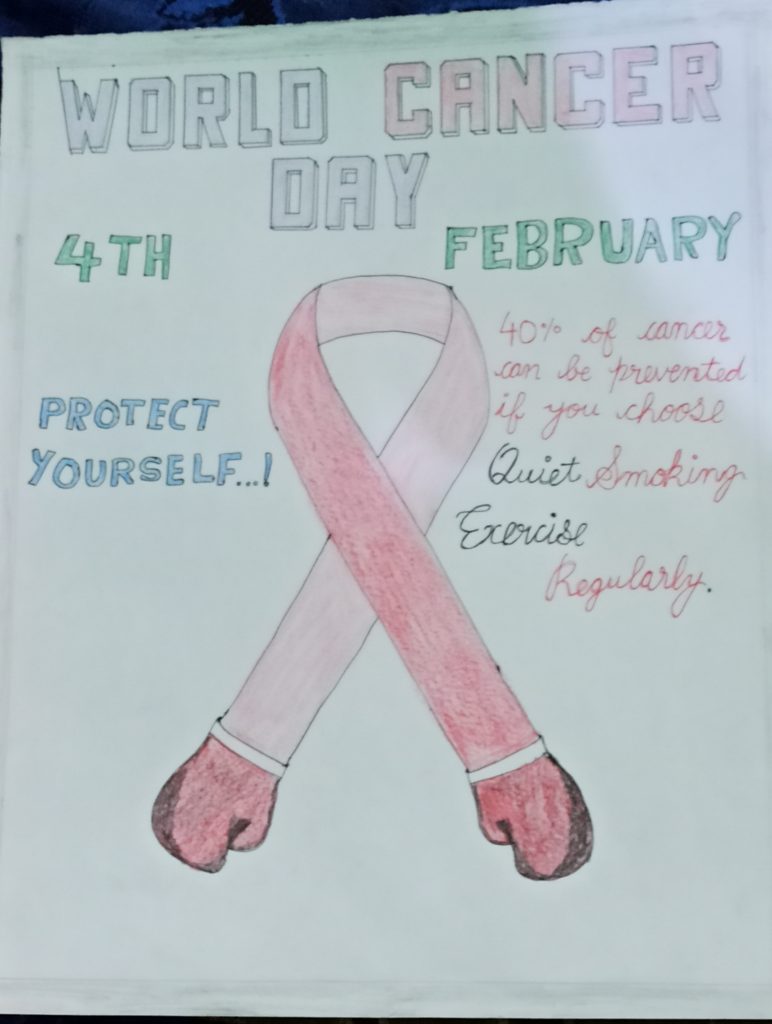 WORLD CANCER
DAY
4TH FEBRUARY
PROTECT
YOURSELF...!
40% of cancer
can be prevented
if you choose
Quiet Smoking
Exercise
Regularly.